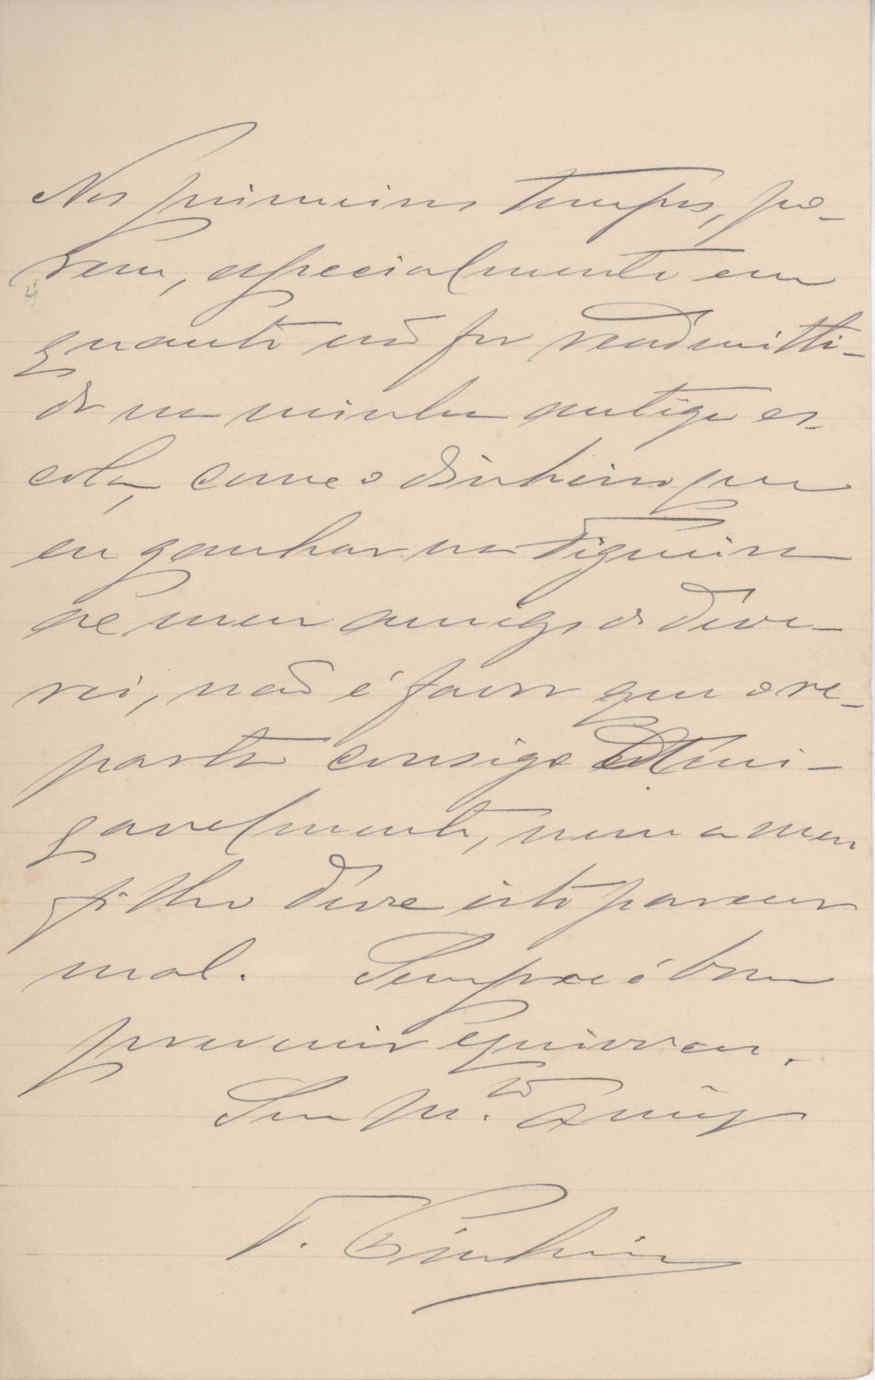 Nos primeiros tempos, po-
rem, especialmente em
quanto não for readmitti-
do na minha antiga es-
cola, como o dinheiro que
eu ganhar na Figueira
ao meu amigo o deve-
rei, não é favor que o re-
parta consigo
gavelmente, nem a meu
filho deve isto parecer
mal. Sempre é bom
prevenir equivocos.
Seu m.to Amigo
T.